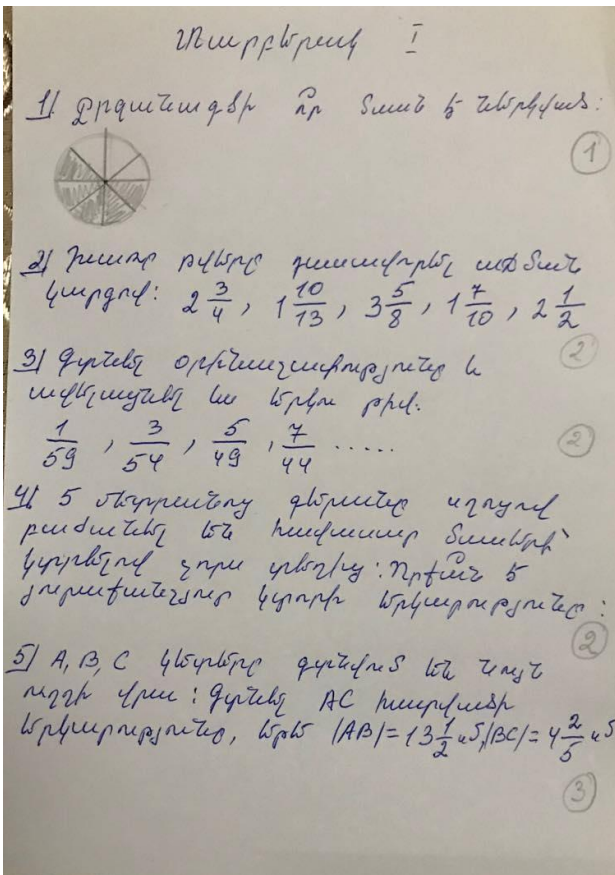 Տարբերակ I
1) Շրջանագծի ո՞ր մասն է ներկված:
1
2) Խառը թվերը դասավորել աճման
կարգով: 2 3/4, 1 10/13, 3 5/8, 1 7/10, 2 1/2
2
3) Գտնել օրինաչափությունը և
ավելացնել ևս երկու թիվ.
1/59, 3/54, 5/49, 7/44 .....
2
4) 5 մետրանոց գերանը սղոցով
բաժանել են հավասար մասերի՝
կտրելով չորս տեղից: Որքա՞ն է
յուրաքանչյուր կտորի երկարությունը:
2
5) A, B, C կետերը գտնվում են նույն
ուղղի վրա: Գտնել AC հատվածի
երկարությունը, եթե |AB|=13 1/2 սմ, |BC|=4 2/5 սմ
3